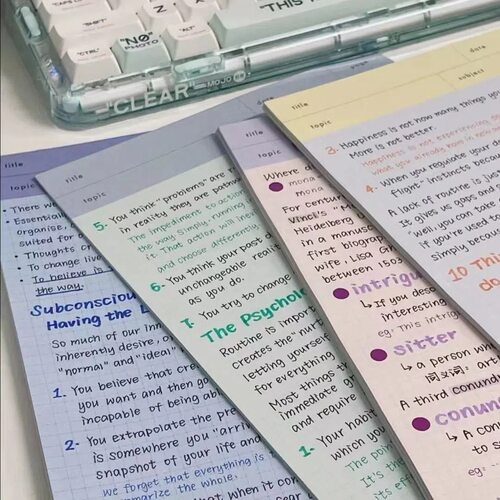 CAPS LO
"SHIFT"
"CTRL"
"Nº"
PHOTO
"ALT"
"THIS
"CLEAR"
MOJO
title
topic
• There w
• Essential
organise,
suited for
• Thoughts
• To change liv
• To believe is
the way.
Subconsciou
Having the L
So much of our inn
inherently desire, o
"normal" and "ideal"
1. You believe that cre
you want and then go
incapable of being ab
2- You extrapolate the pre
is somewhere you "arriv
snapshot of your life and
we forget that everything is
summarize the whole.
that when it com
title
topic
5. You think "problems" are r
in reality they are pathwa
The impediment to action
the way. Simply running
it. That action inevi
and choose differently
6- You think your past d
unchangeable realit
as you do.
7. You try to change
The Psycholo
Routine is import
creates the "nur
letting yourself
for everything
Most things th
immediate gr
and require
1- Your habit
which you
The po
It's th
its eff
title
topic
Where di
mona
mona
For centur
Vinci's
Heidelberg
in a manusc
first biograp
wife, Lisa Gh
between 1503
intrigu
↳ If you desc
interesting
eg: This intrig
sitter
↳ a person wh
同义词: art
A third conun
conun
↳ A con
to s
eg:
title
topic
subject
date
3. Happiness is not how many things you
More is not better.
Happiness is not experiencing
what you already have in new
4. When you regulate your d
flight" instincts becau
A lack of routine is jus
It gives us gaps and
"well, you can take
if you're used
simply because
10 Thin
do